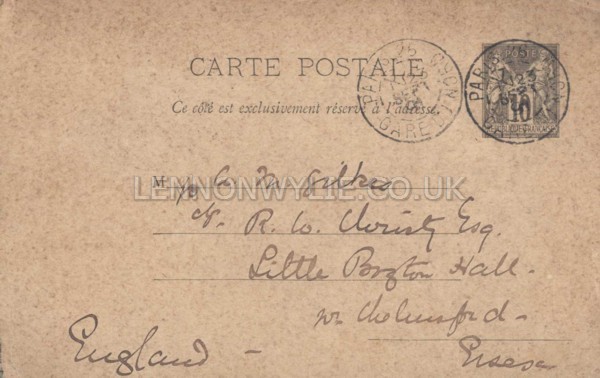 CARTE POSTALE
Ce côté est exclusivement réservé à l'adresse.
PARIS
GARE
PARIS
10
LENNONWYLIE.CO.UK
M
C. M. Gilkes
R. W. Christy Esq.
Little Boyton Hall.
nr Chelmsford -
Essex
England -